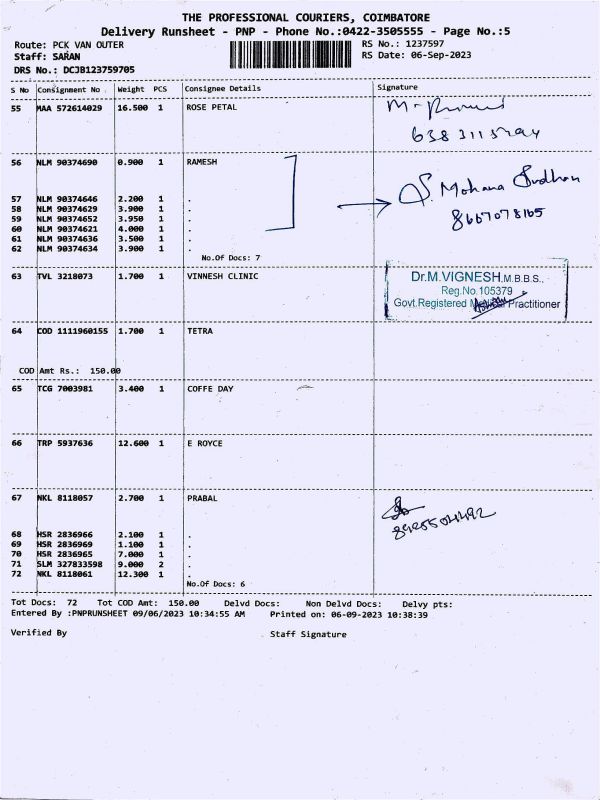 THE PROFESSIONAL COURIERS, COIMBATORE
Delivery Runsheet - PNP - Phone No.:0422-3505555 - Page No.:5
Route: PCK VAN OUTER RS No.: 1237597
Staff: SARAN RS Date: 06-Sep-2023
DRS No.: DCJB123759705
S No Consignment No Weight PCS Consignee Details Signature
55 MAA 572614029 16.500 1 ROSE PETAL
56 NLM 90374690 0.900 1 RAMESH
57 NLM 90374646 2.200 1 .
S. Mohana Sudhan
58 NLM 90374629 3.900 1 .
8667078165
59 NLM 90374652 3.950 1 .
60 NLM 90374621 4.000 1 .
61 NLM 90374636 3.500 1 .
62 NLM 90374634 3.900 1 .
No.Of Docs: 7
63 TVL 3218073 1.700 1 VINNESH CLINIC
Dr.M.VIGNESH,M.B.B.S.,
Reg.No.105379
Govt.Registered Practitioner
64 COD 1111960155 1.700 1 TETRA
COD Amt Rs.: 150.00
65 TCG 7003981 3.400 1 COFFE DAY
66 TRP 5937636 12.600 1 E ROYCE
67 NKL 8118057 2.700 1 PRABAL
68 HSR 2836966 2.100 1 .
69 HSR 2836969 1.100 1 .
70 HSR 2836965 7.000 1 .
71 SLM 327833598 9.000 2 .
72 NKL 8118061 12.300 1 .
No.Of Docs: 6
Tot Docs: 72 Tot COD Amt: 150.00 Delvd Docs: Non Delvd Docs: Delvy pts:
Entered By :PNPRUNSHEET 09/06/2023 10:34:55 AM Printed on: 06-09-2023 10:38:39
Verified By Staff Signature